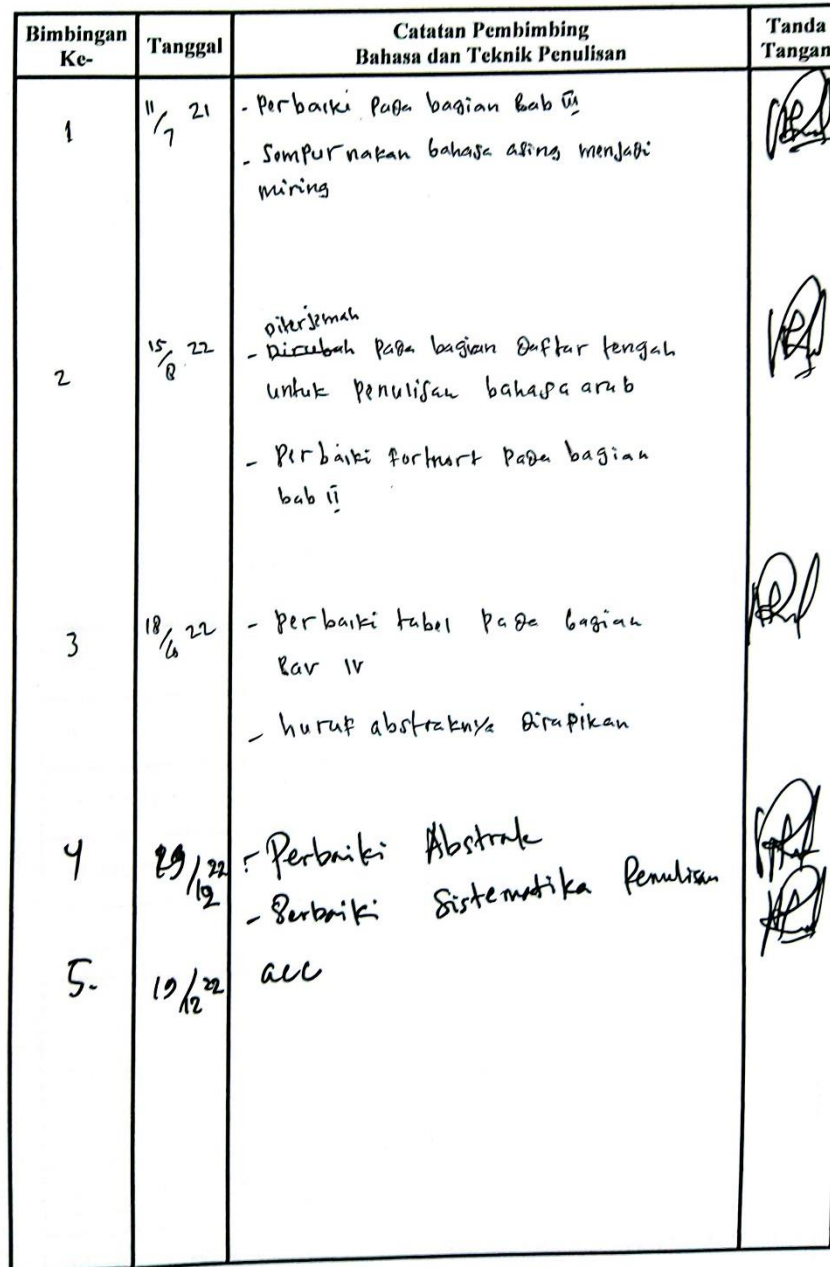 Bimbingan Ke- Tanggal Catatan Pembimbing Bahasa dan Teknik Penulisan Tanda Tangan
1 11/7 21 - Perbaiki Pada bagian Bab III
- Sempurnakan bahasa asing menjadi
miring
Diterjemah
2 15/8 22 - Dirubah pada bagian Daftar tengah
untuk penulisan bahasa arab
- Perbaiki pada bagian
bab II
3 18/ 22 - perbaiki tabel pada bagian
Bav IV
- huruf abstraknya Dirapikan
4 /22 - Perbaiki Abstrak
- Perbaiki Sistematika Penulisan
5. 19/12 22 acc